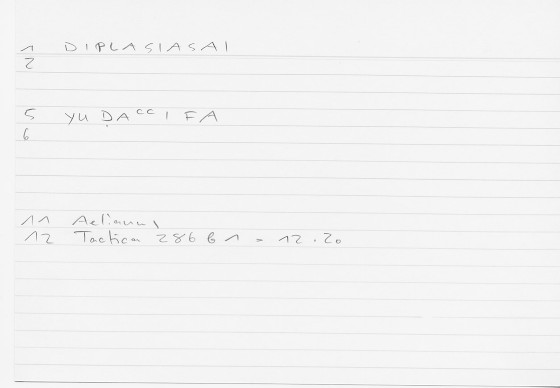 1 DIPLASIASAI
2
5 YU ḌA^CC I FA
6
11 Aelianus,
12 Tactica 286 B 1 - 12.20